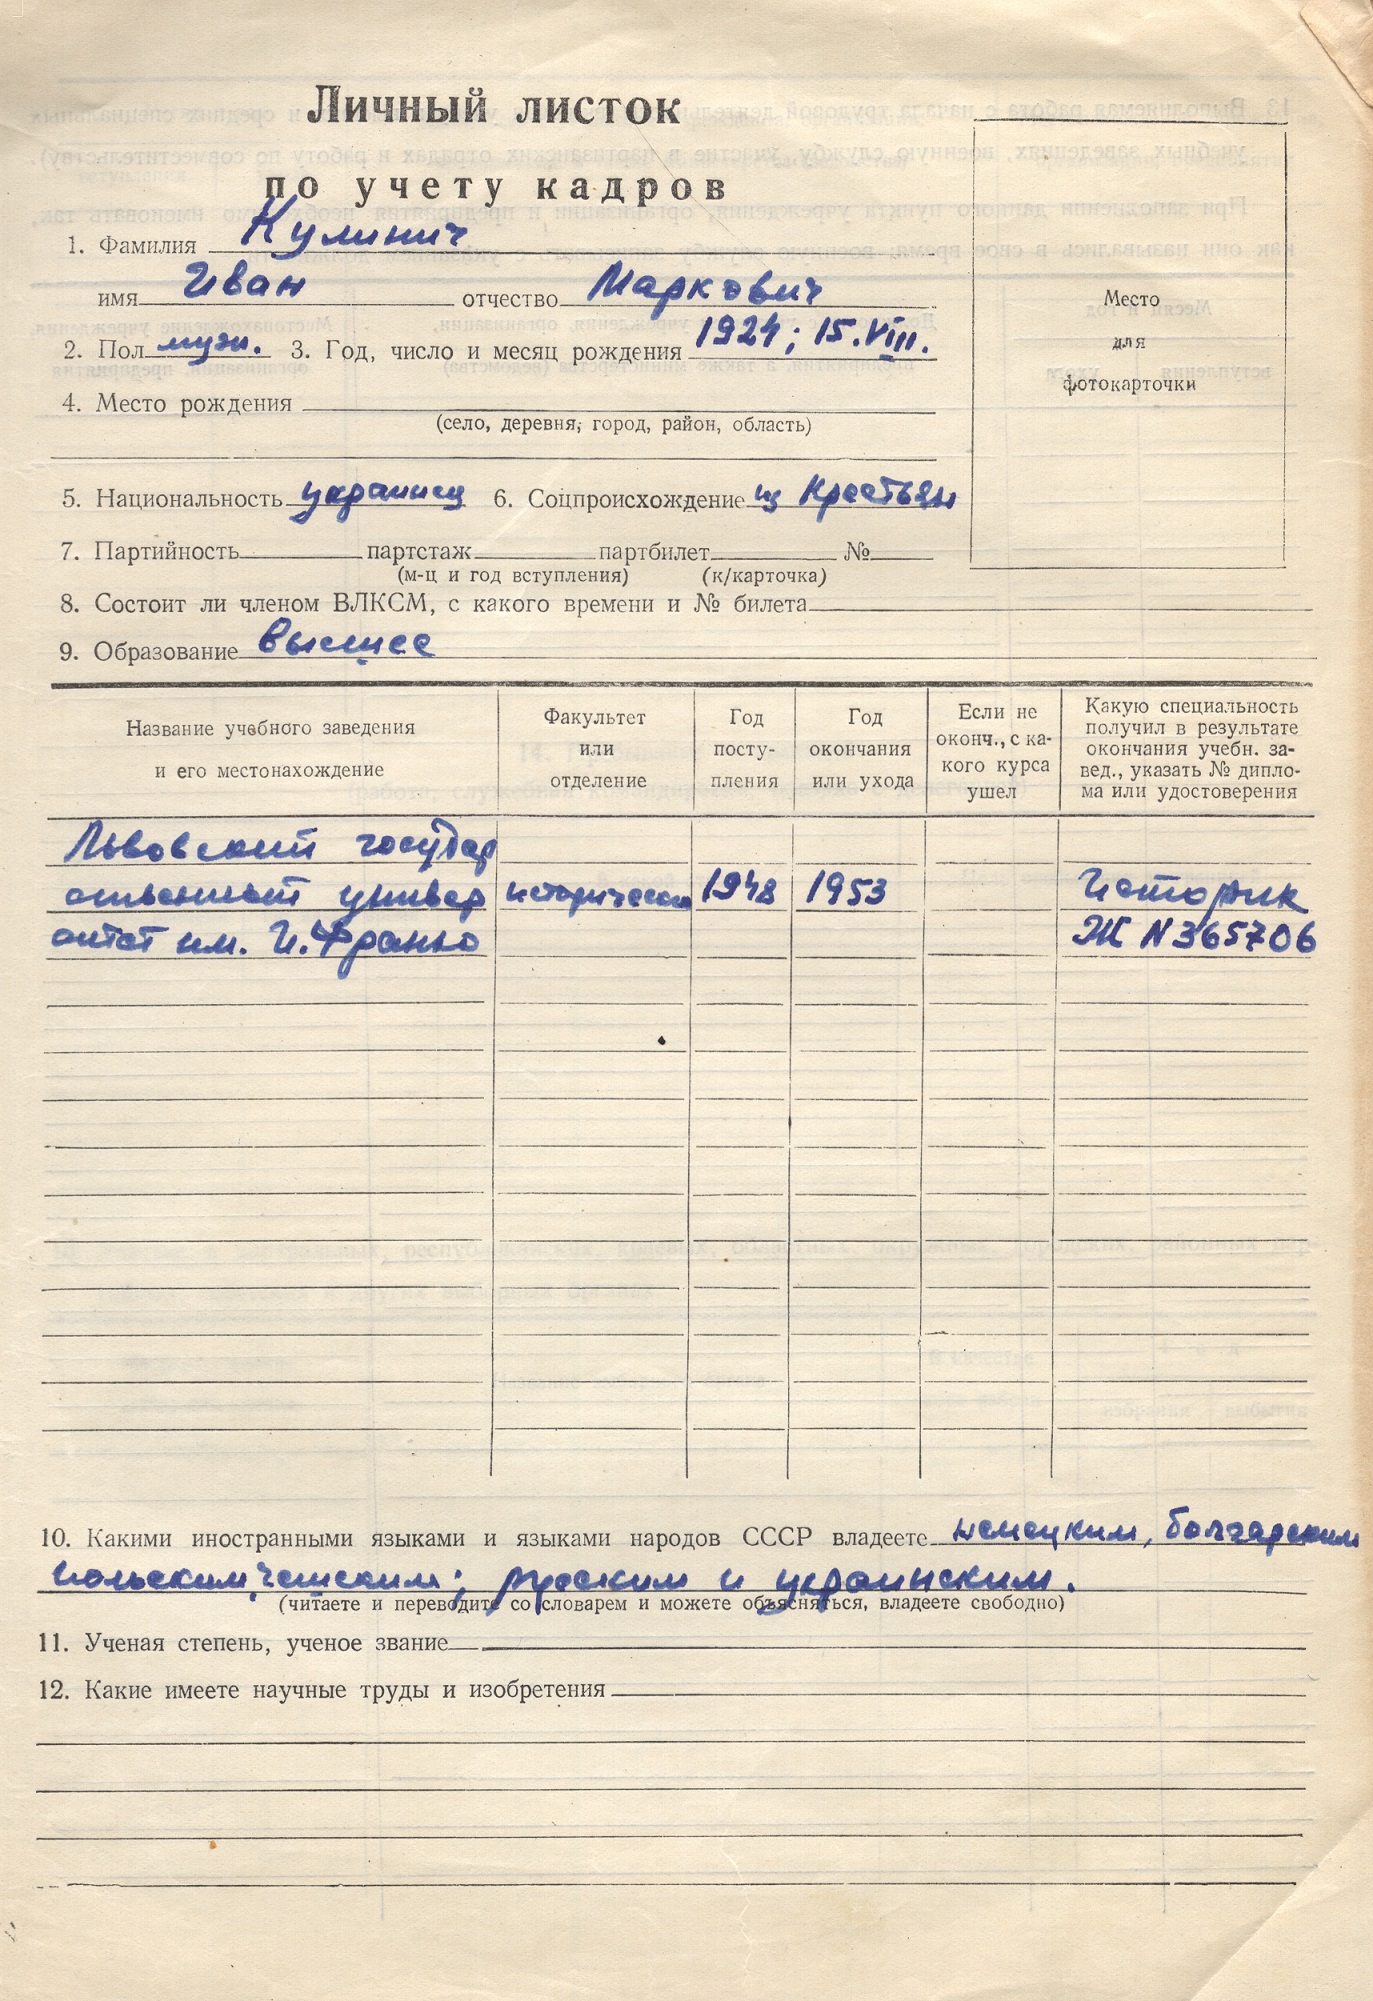 Личный листок
по учету кадров
1. Фамилия Кулинич
имя Иван отчество Маркович
2. Пол муж. 3. Год, число и месяц рождения 1924; 15.VIII.
4. Место рождения
(село, деревня, город, район, область)
5. Национальность украинец 6. Соцпроисхождение из крестьян
7. Партийность партстаж партбилет №
(м-ц и год вступления) (к/карточка)
8. Состоит ли членом ВЛКСМ, с какого времени и № билета
9. Образование высшее
Место
для
фотокарточки
Название учебного заведения
и его местонахождение
Факультет
или
отделение
Год
посту-
пления
Год
окончания
или ухода
Если не
оконч., с ка-
кого курса
ушел
Какую специальность
получил в результате
окончания учебн. за-
вед., указать № дипло-
ма или удостоверения
Львовский государ
ственный универ исторический 1948 1953 Историк
ситет им. И. Франко Ж N 365706
10. Какими иностранными языками и языками народов СССР владеете немецким, болгарским
польским, чешским; русским и украинским.
(читаете и переводите со словарем и можете объясняться, владеете свободно)
11. Ученая степень, ученое звание
12. Какие имеете научные труды и изобретения